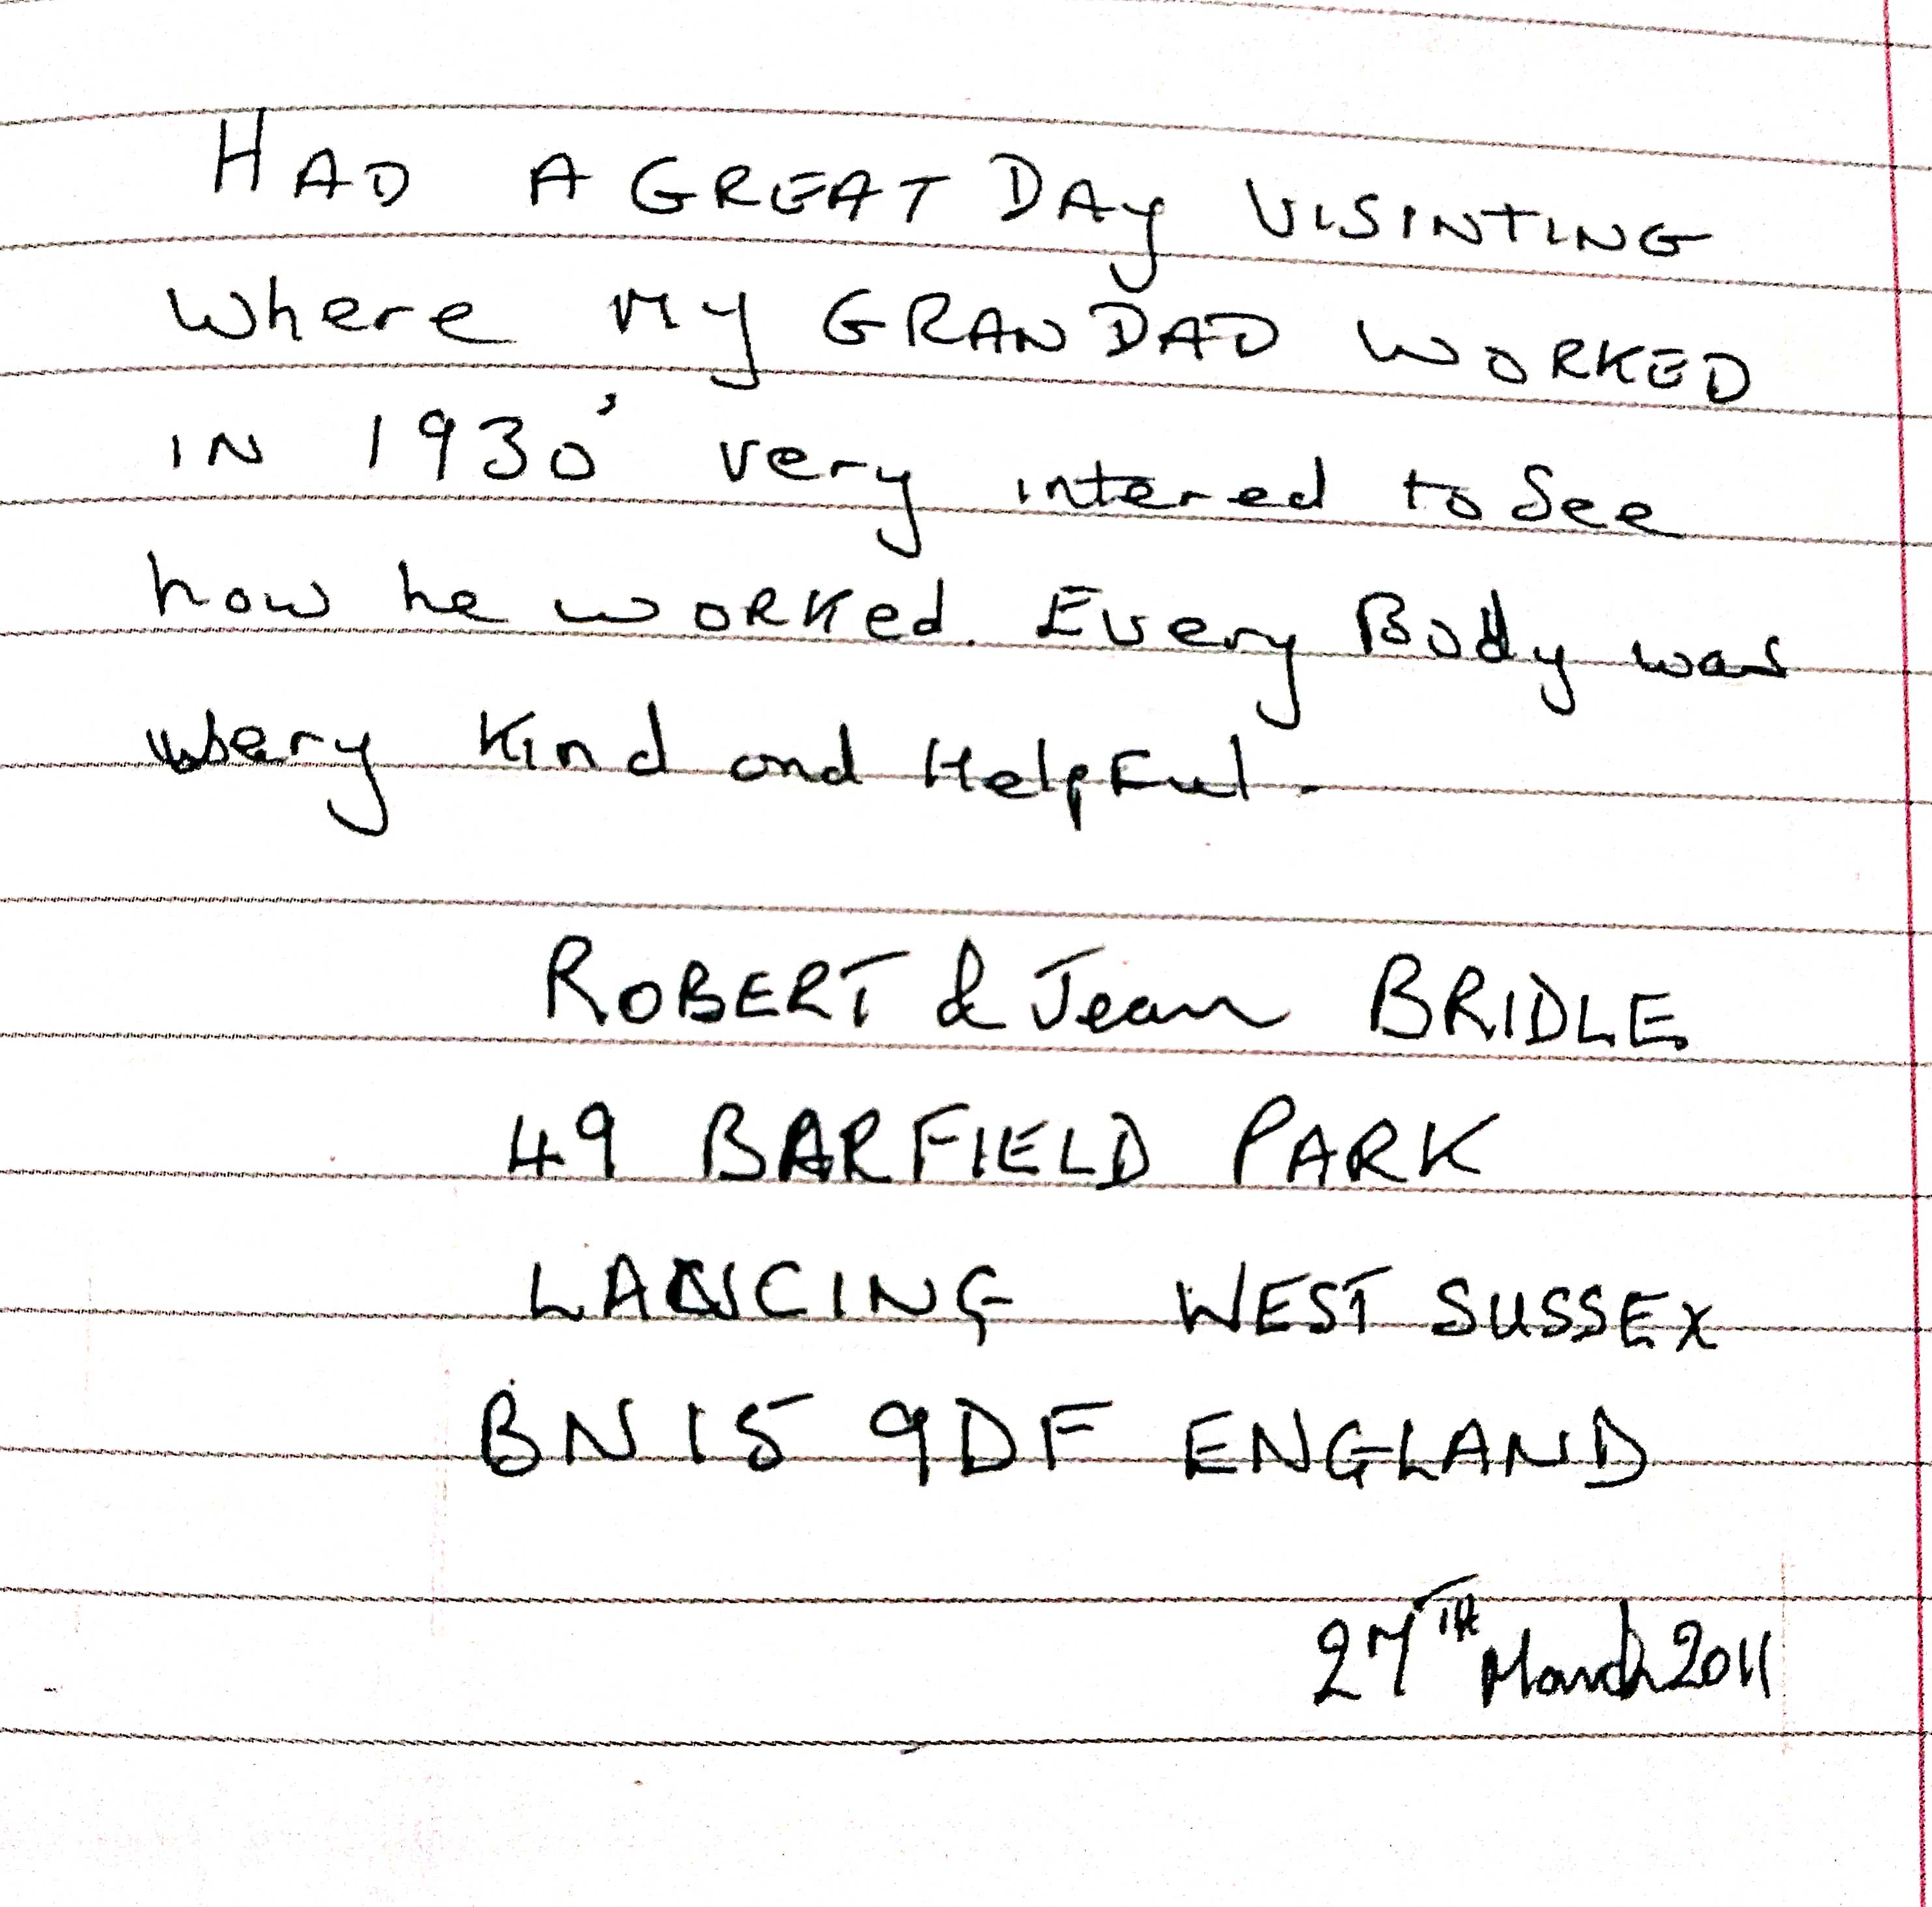 HAD A GREAT DAY VISINTING
where MY GRANDAD WORKED
IN 1930' very intered to See
how he WORKed. Every Body was
very Kind and HelpFul.
ROBERT & Jean BRIDLE
49 BARFIELD PARK
LANCING WEST SUSSEX
BN15 9DF ENGLAND
27TH March 2011